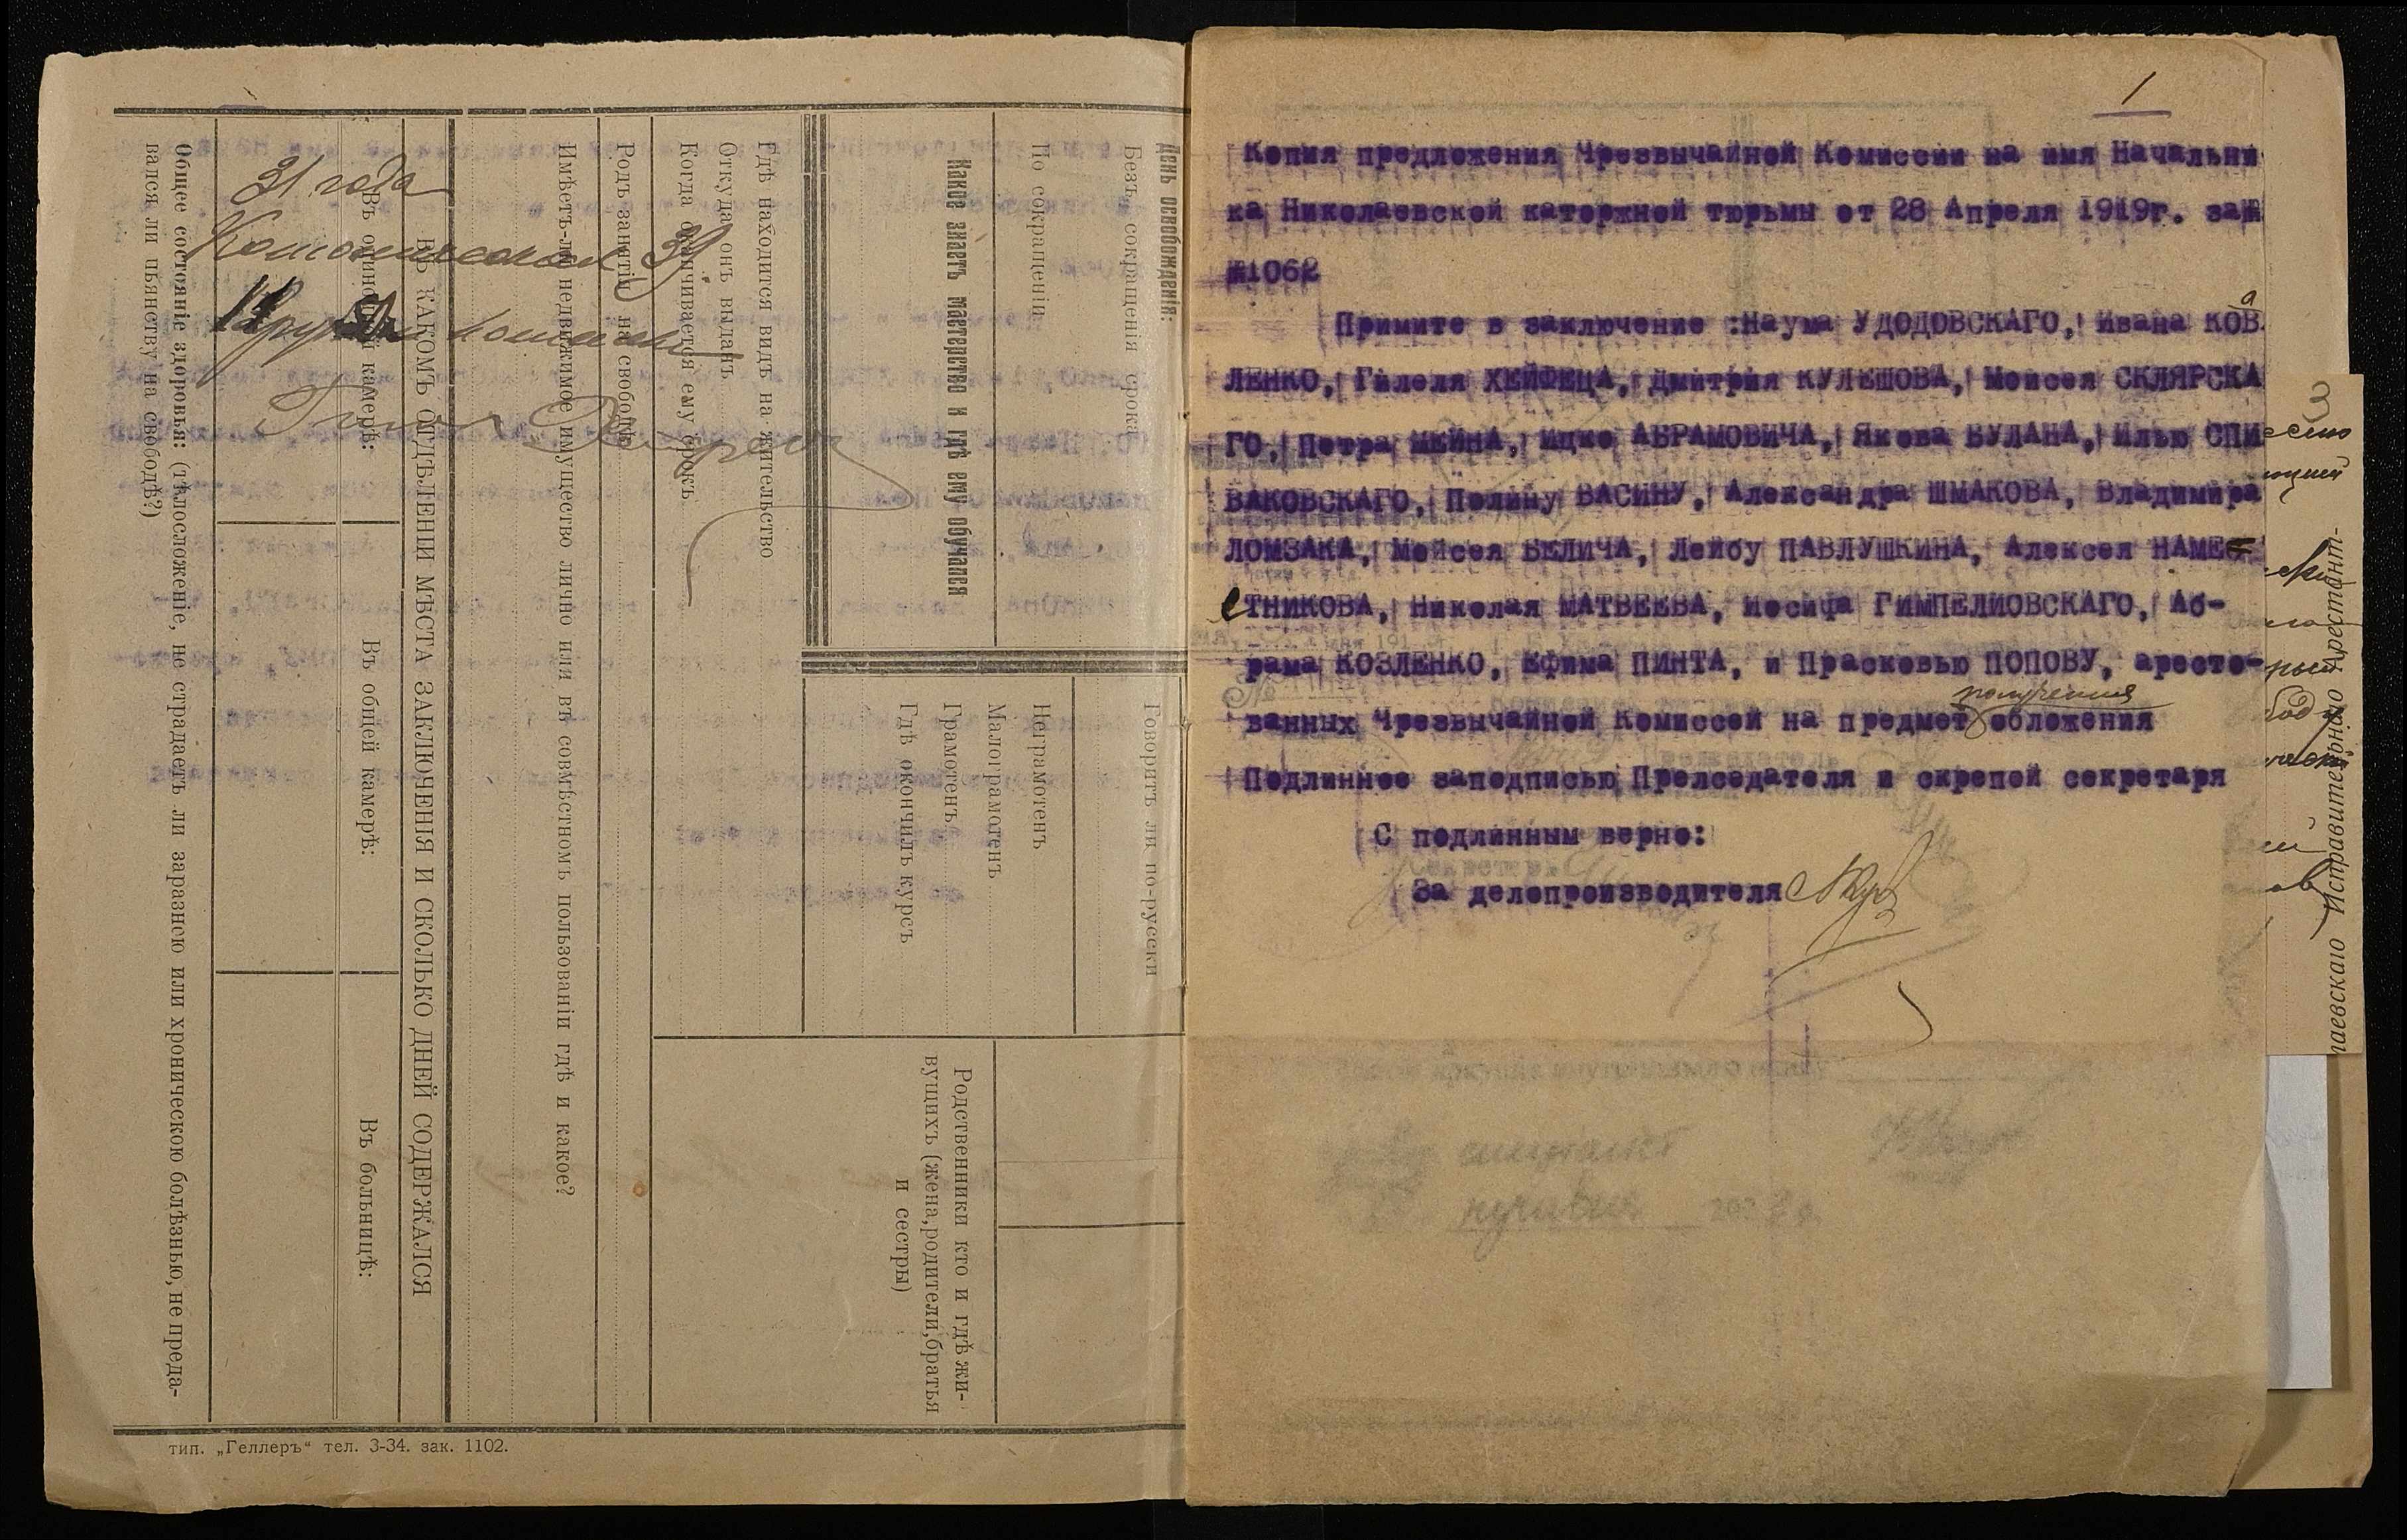 День освобожденія:
Безъ сокращенія срока
По сокращеніи
Говоритъ ли по-русски
Какое знаетъ мастерство и гдѣ ему обучался
Неграмотенъ
Малограмотенъ
Грамотенъ
Гдѣ окончилъ курсъ
Родственники кто и гдѣ жи-
вущихъ (жена,родители,братья
и сестры)
Гдѣ находится видъ на жительство
Откуда онъ выданъ
Когда оканчивается ему срокъ
Родъ занятій на свободѣ
Имѣетъ-ли недвижимое имущество лично или въ совмѣстномъ пользованіи гдѣ и какое?
ВЪ КАКОМЪ ОТДѢЛЕНІИ МѢСТА ЗАКЛЮЧЕНІЯ И СКОЛЬКО ДНЕЙ СОДЕРЖАЛСЯ
Въ одиночной камерѣ:
Въ общей камерѣ:
Въ больницѣ:
Общее состояніе здоровья: (тѣлосложеніе, не страдаетъ ли заразною или хроническою болѣзнью, не преда-
вался ли пьянству на свободѣ?)
31 года
39
тип. „Геллеръ“ тел. 3-34. зак. 1102.
1
Копия предложения Чрезвычайной Комиссии на имя Начальни
ка Николаевской каторжной тюрьмы от 28 Апреля 1919г. за№
№1062
Примите в заключение :Наума УДОДОВСКАГО, Ивана КОВа
ЛЕНКО, Гилеля ХЕЙФЕЦА, Дмитрия КУЛЕШОВА, Моисея СКЛЯРСКА
ГО, Петра ШЕЙНА, Ицко АБРАМОВИЧА, Якова БУЛАНА, Илью СПИ
ВАКОВСКАГО, Полину ВАСИНУ, Александра ШМАКОВА, Владимира
ЛОМЗАКА, Мойсея БЕЛИЧА, Лейбу ПАВЛУШКИНА, Алексея НАМЕ
стНИКОВА, Николая МАТВЕЕВА, Иосифа ГИМПЕЛИОВСКАГО, Аб-
рама КОЗЛЕНКО, Ефима ПИНТА, и Прасковью ПОПОВУ, аресто-
ванных Чрезвычайной Комиссей на предмет получения обложения
Подлинное заподписью Прелседателя и скрепой секретаря
С подлинным верно:
За делопроизводителя
3
лаевскаго Исправительнаго Арестант-